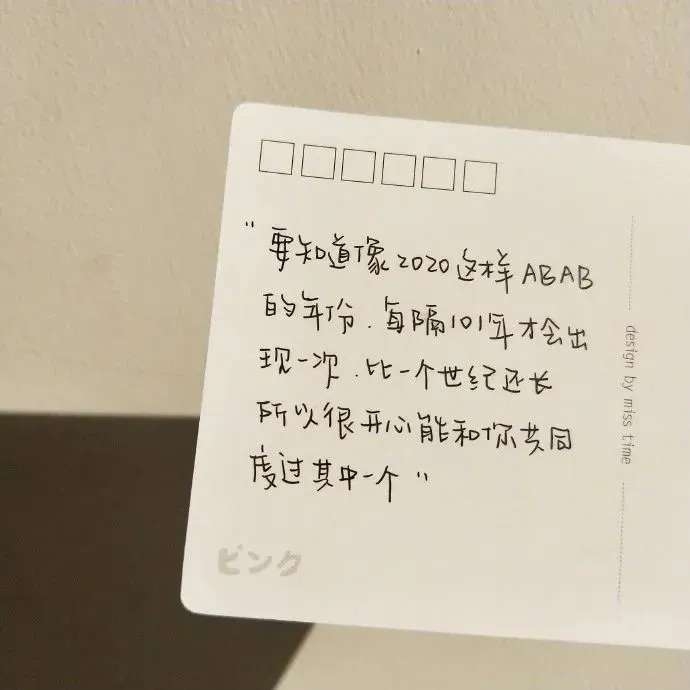 "要知道像2020这样ABAB
的年份.每隔101年才会出
现一次.比一个世纪还长
所以很开心能和你共同
度过其中一个"
design by miss time
ピンク